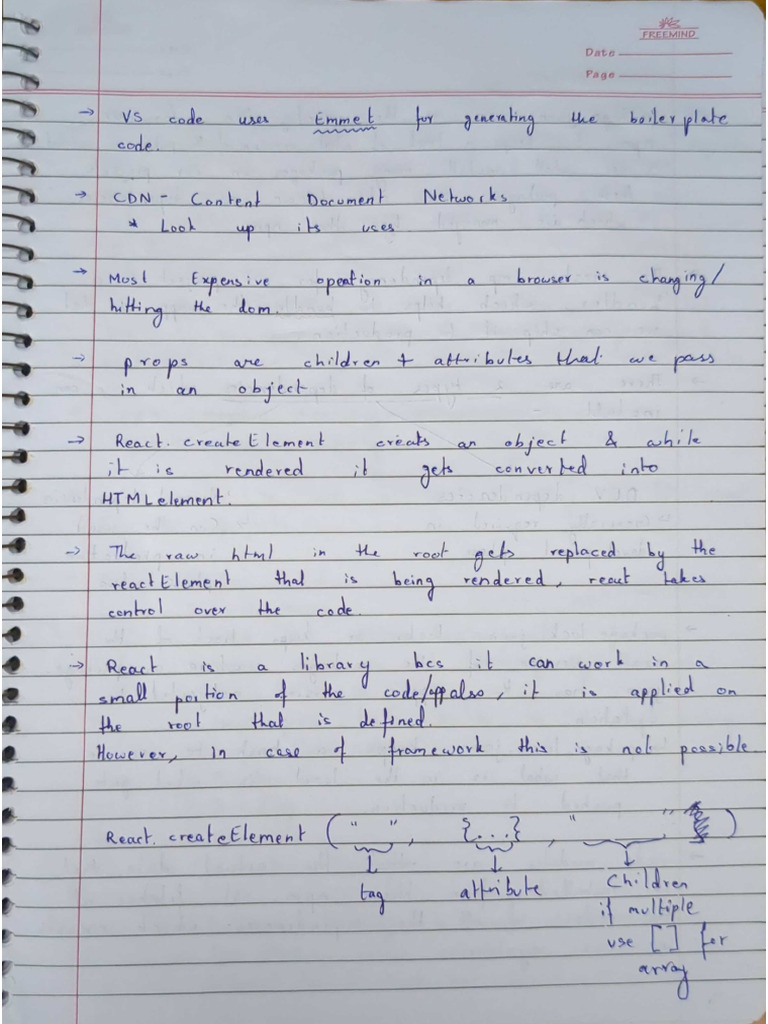 FREEMIND
Date
Page
→ VS code uses Emmet for generating the boilerplate
code.
→ CDN - Content Document Networks
* Look up its uses
→ Most Expensive opeation in a browser is changing/
hitting the dom.
→ props are children + attributes that we pass
in an object
→ React. createElement creats an object & while
it is rendered it gets converted into
HTMLelement.
→ The raw html in the root gets replaced by the
reactElement that is being rendered, react takes
control over the code.
→ React is a library bcs it can work in a
small portion of the code/app also, it is applied on
the root that is defined.
However, in case of framework this is not possible.
React. createElement (" ", {...}, " ")
↓ ↓ ↓
tag attribute Children
if multiple
use [ ] for
array